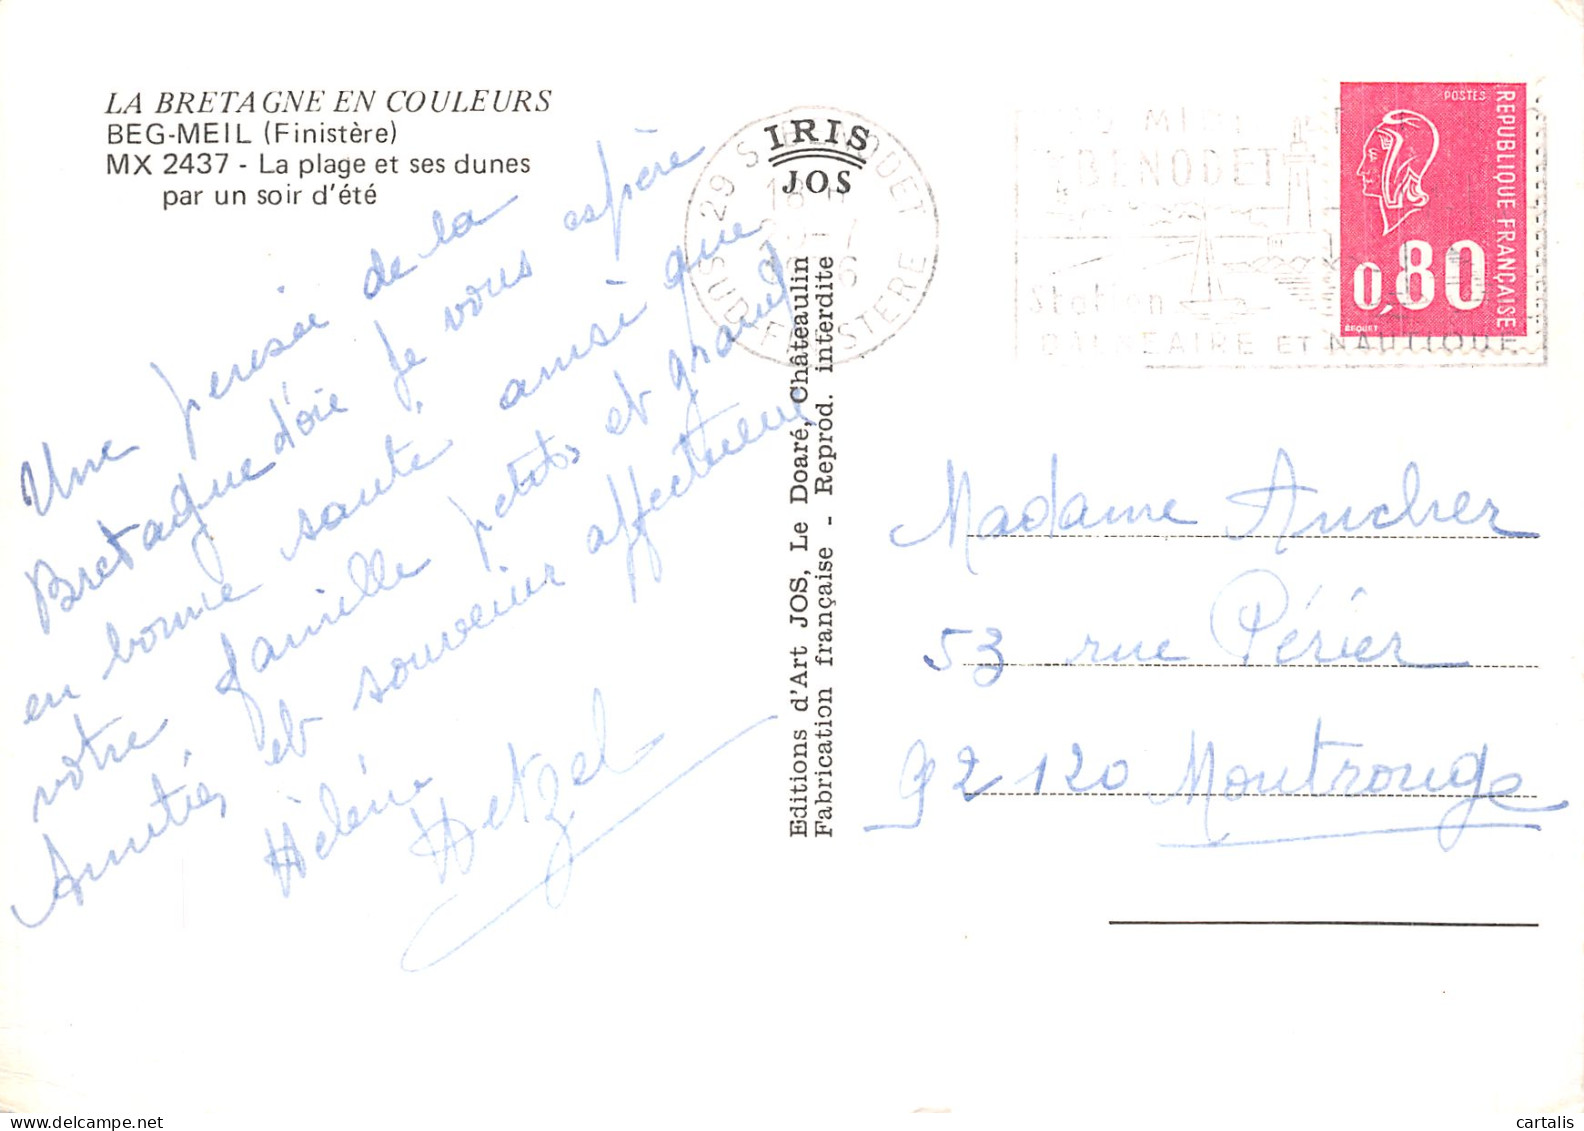 LA BRETAGNE EN COULEURS
BEG-MEIL (Finistère)
MX 2437 - La plage et ses dunes
par un soir d'été
Une pensée de la
Bretagne d'où je vous espère
en bonne santé, ainsi que
votre famille petits et grands
Amitiés et souvenir affectueux
Hélène Hetzel
IRIS
JOS
Editions d'Art JOS, Le Doaré, Châteaulin
Fabrication française - Reprod. interdite
29
SUD FINISTERE
BENODET
Station
BALNEAIRE ET NAUTIQUE
POSTES
REPUBLIQUE FRANÇAISE
0,80
BEQUET
Madame Aucher
53 rue Périer
92120 Montrouge
cartalis